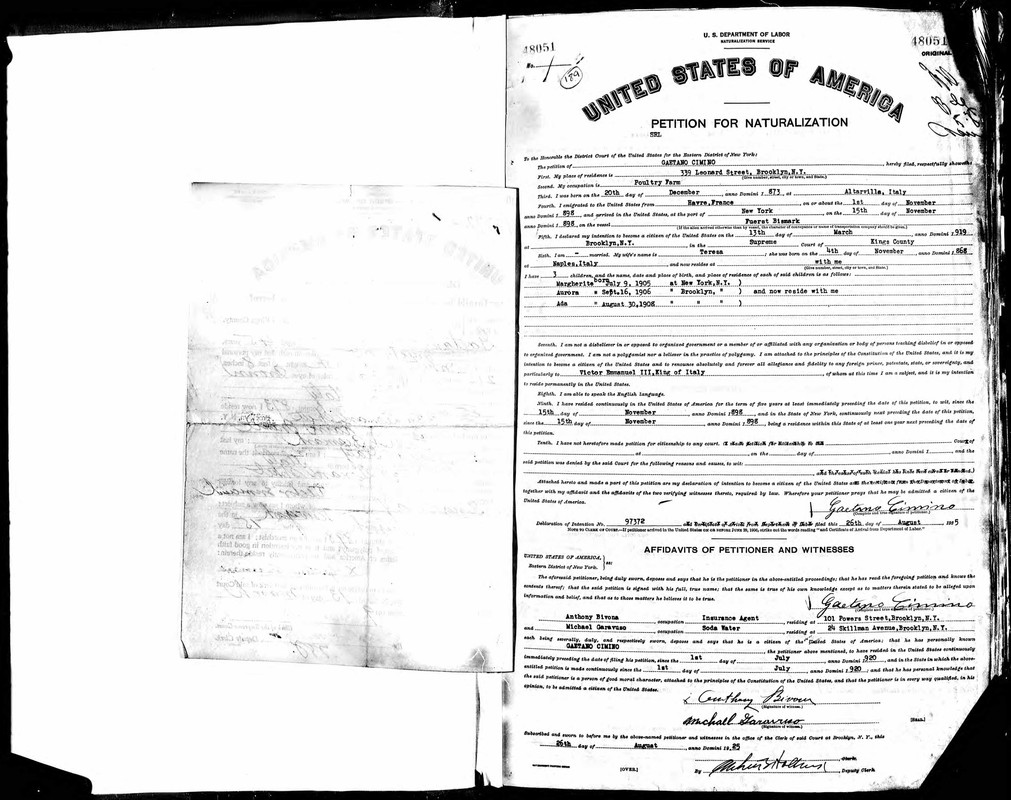 U. S. DEPARTMENT OF LABOR
NATURALIZATION SERVICE
48051
48051
ORIGINAL
No.
189
UNITED STATES OF AMERICA
PETITION FOR NATURALIZATION
SRL
To the Honorable the District Court of the United States for the Eastern District of New York:
The petition of GAETANO CIMINO, hereby filed, respectfully showeth:
First. My place of residence is 339 Leonard Street, Brooklyn,N.Y.
(Give number, street, city or town, and State.)
Second. My occupation is Poultry Farm
Third. I was born on the 20th day of December anno Domini 1 873, at Altarvilla, Italy
Fourth. I emigrated to the United States from Havre,France on or about the 1st day of November
anno Domini 1 898 and arrived in the United States, at the port of New York on the 15th day of November
anno Domini 1 898 on the vessel Fuerst Bismark
(If the alien arrived otherwise than by vessel, the character of conveyance or name of transportation company should be given.)
Fifth. I declared my intention to become a citizen of the United States on the 13th day of March anno Domini 1 919
at Brooklyn,N.Y. in the Supreme Court of Kings County
Sixth. I am - married. My wife's name is Teresa; she was born on the 4th day of November, anno Domini 1 868
at Naples,Italy and now resides at with me
(Give number, street, city or town, and State.)
I have 3 children, and the name, date and place of birth, and place of residence of each of said children is as follows:
Margherite born July 9, 1905 at New York,N.Y. )
Aurora " Sept.16, 1906 " Brooklyn, " ) and now reside with me
Ada " August 30,1908 " " " )
Seventh. I am not a disbeliever in or opposed to organized government or a member of or affiliated with any organization or body of persons teaching disbelief in or opposed
to organized government. I am not a polygamist nor a believer in the practice of polygamy. I am attached to the principles of the Constitution of the United States, and it is my
intention to become a citizen of the United States and to renounce absolutely and forever all allegiance and fidelity to any foreign prince, potentate, state, or sovereignty, and
particularly to Victor Emmanuel III,King of Italy, of whom at this time I am a subject, and it is my intention
to reside permanently in the United States.
Eighth. I am able to speak the English language.
Ninth. I have resided continuously in the United States of America for the term of five years at least immediately preceding the date of this petition, to wit, since the
15th day of November, anno Domini 1 898, and in the State of New York, continuously next preceding the date of this petition,
since the 15th day of November, anno Domini 1 898, being a residence within this State of at least one year next preceding the date of
this petition.
Tenth. I have not heretofore made petition for citizenship to any court. Court of
at on the day of, anno Domini 1 and the
said petition was denied by the said Court for the following reasons and causes, to wit:
Attached hereto and made a part of this petition are my declaration of intention to become a citizen of the United States
together with my affidavit and the affidavits of the two verifying witnesses thereto, required by law. Wherefore your petitioner prays that he may be admitted a citizen of the
United States of America.
Gaetano Cimino
(Complete and true signature of petitioner.)
Declaration of Intention No. 97372 filed this 26th day of August 1925
NOTE TO CLERK OF COURT.—If petitioner arrived in the United States ON OR BEFORE JUNE 29, 1906, strike out the words reading "and Certificate of Arrival from Department of Labor."
AFFIDAVITS OF PETITIONER AND WITNESSES
UNITED STATES OF AMERICA,
Eastern District of New York. ss:
The aforesaid petitioner, being duly sworn, deposes and says that he is the petitioner in the above-entitled proceedings; that he has read the foregoing petition and knows the
contents thereof; that the said petition is signed with his full, true name; that the same is true of his own knowledge except as to matters therein stated to be alleged upon
information and belief, and that as to those matters he believes it to be true.
Gaetano Cimino
(Complete and true signature of petitioner.)
Anthony Bivona occupation Insurance Agent, residing at 101 Powers Street,Brooklyn,N.Y.
and Michael Garavuso, occupation Soda Water, residing at 24 Skillman Avenue,Brooklyn,N.Y.
each being severally, duly, and respectively sworn, deposes and says that he is a citizen of the United States of America; that he has personally known
GAETANO CIMINO, the petitioner above mentioned, to have resided in the United States continuously
immediately preceding the date of filing his petition, since the 1st day of July, anno Domini 1 920, and in the State in which the above-
entitled petition is made continuously since the 1st day of July, anno Domini 1 920; and that he has personal knowledge that
the said petitioner is a person of good moral character, attached to the principles of the Constitution of the United States, and that the petitioner is in every way qualified, in his
opinion, to be admitted a citizen of the United States.
Anthony Bivona
(Signature of witness.)
Michall Garavuso
(Signature of witness.)
[SEAL.]
Subscribed and sworn to before me by the above-named petitioner and witnesses in the office of the Clerk of said Court at Brooklyn, N. Y., this
26th day of August, anno Domini 19 25
Clerk.
[OVER.]
By, Deputy Clerk